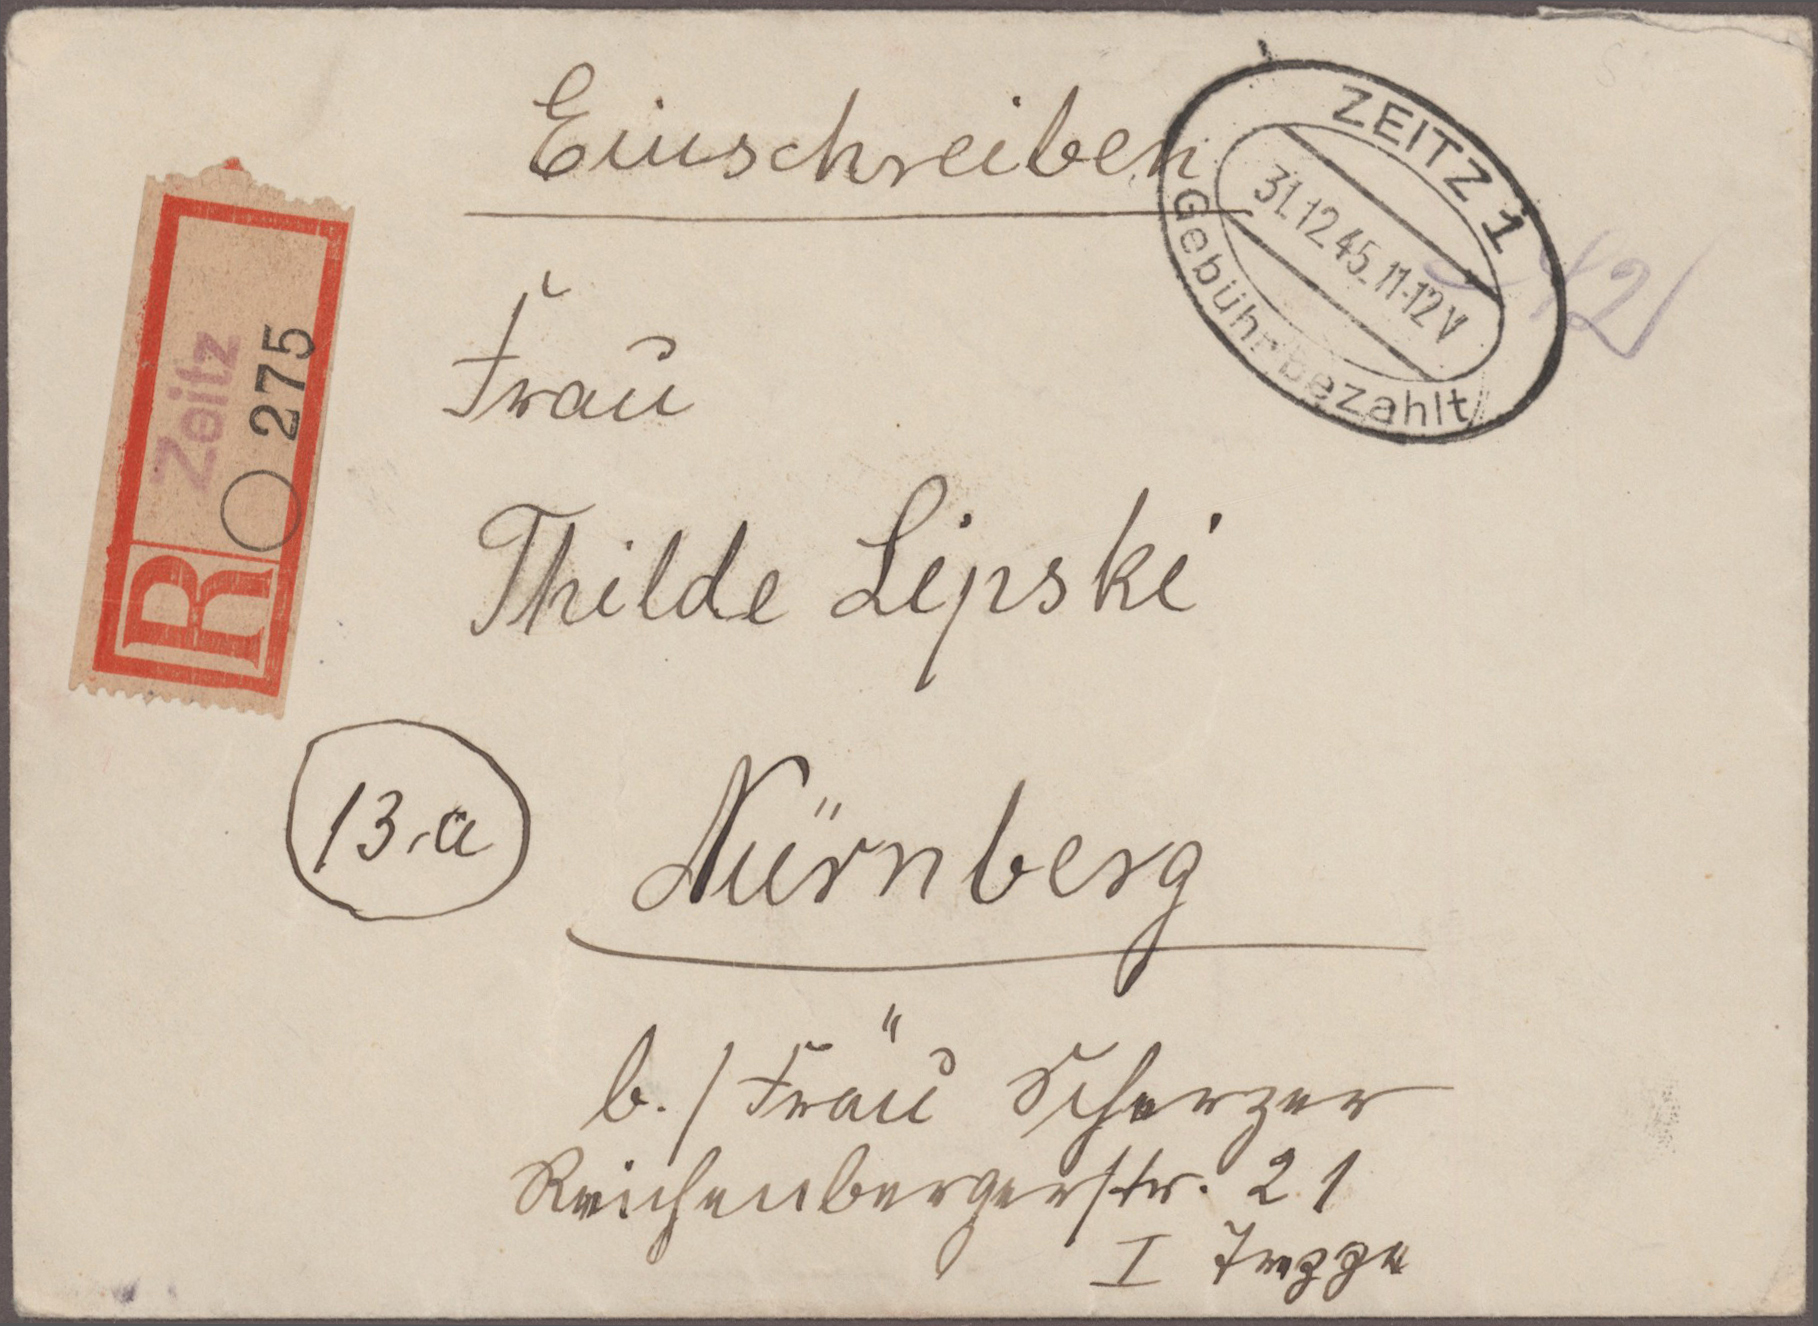 Einschreiben
ZEITZ 1
31.12.45.11-12V
Gebühr bezahlt
Zeitz
275
R
Frau
Thilde Lipski
13.a
Nürnberg
b./Frau Scherzer
Reichenbergerstr. 21
I Treppe